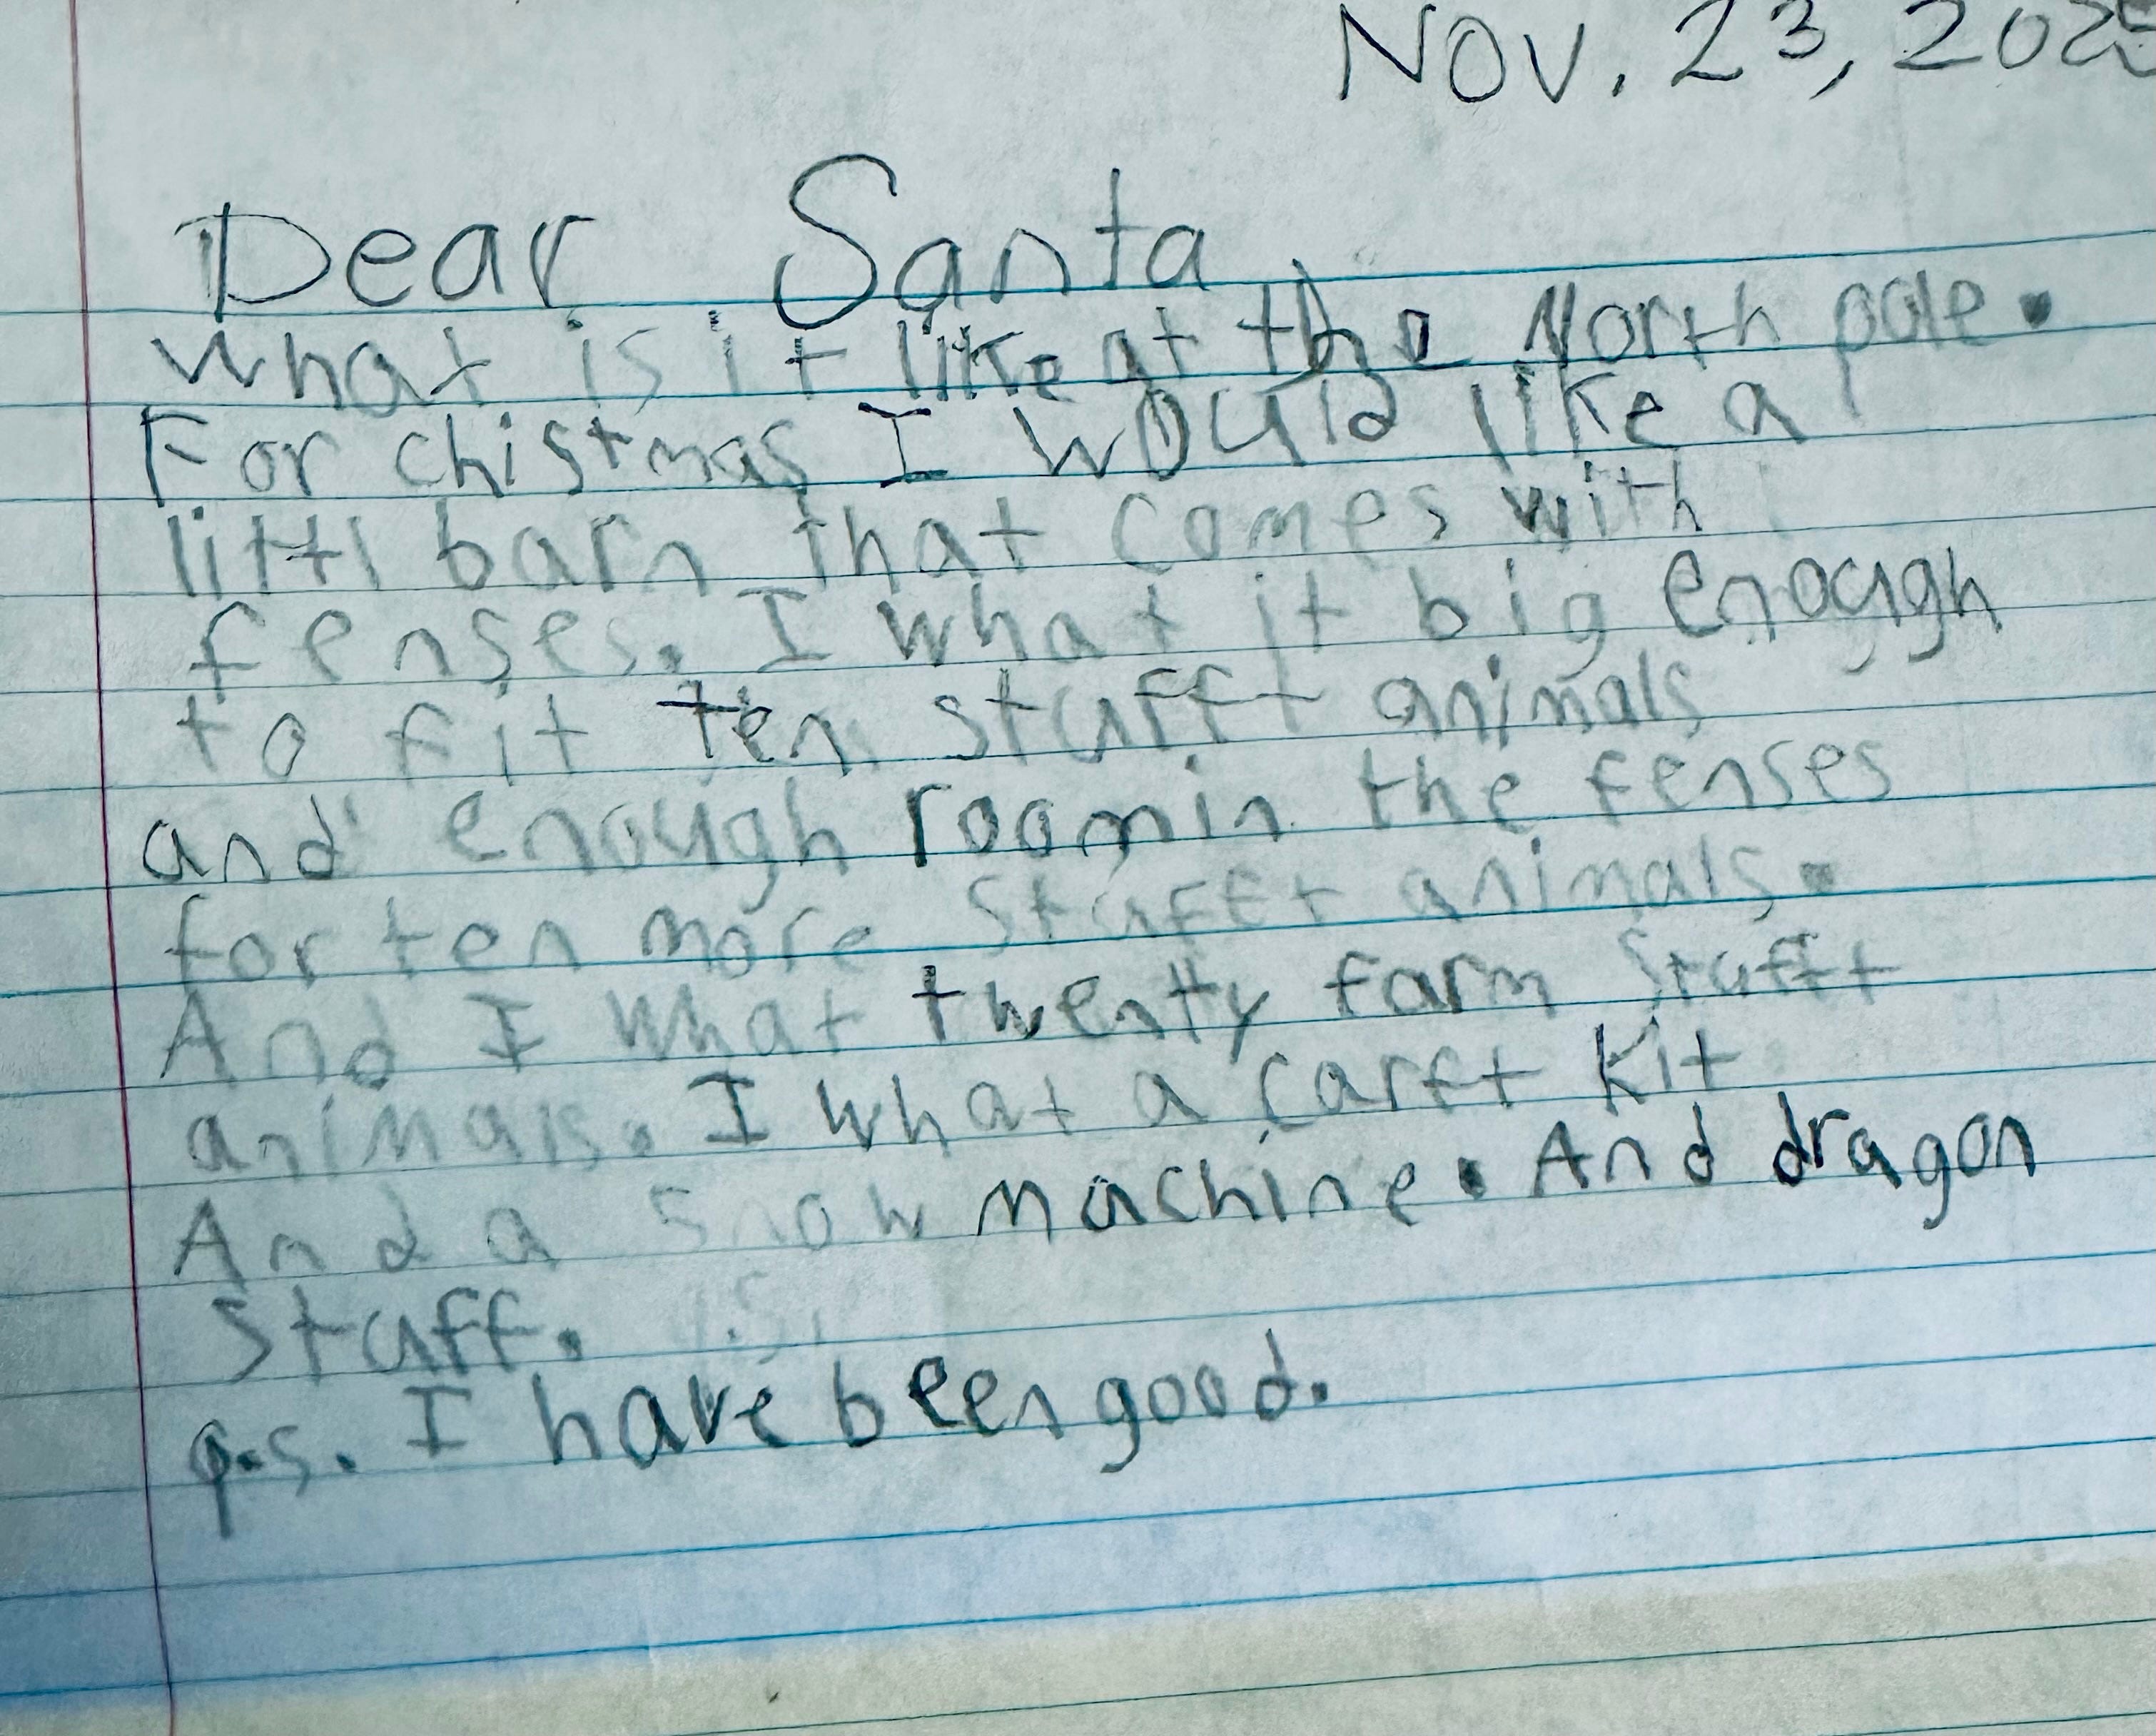 Nov. 23, 202
Dear Santa,
What is it like at the North pole.
For chistmas I would like a
littl barn that comes with
fenses. I what it big enough
to fit ten stufft animals
and enough room in the fenses
for ten more stufft animals.
And I what twenty farm stufft
animals. I what a carft kit
And a snow machine. And dragon
stuff.
p.s. I have been good.